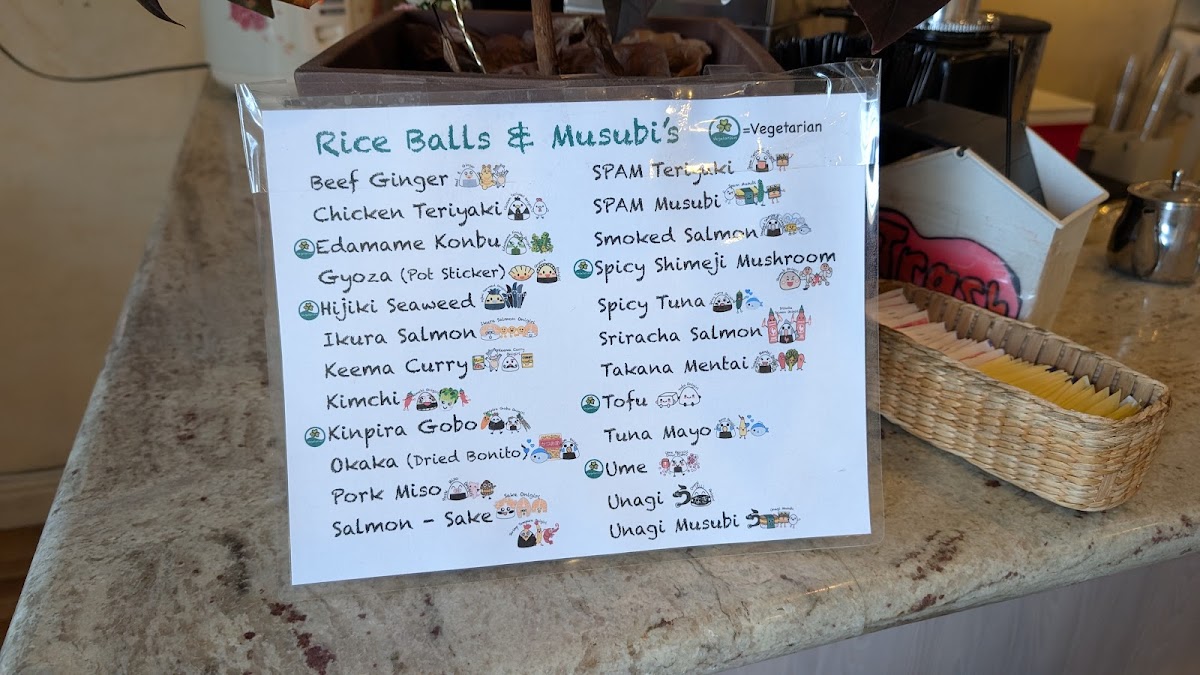 Rice Balls & Musubi's
=Vegetarian
Beef Ginger
Chicken Teriyaki
Edamame Konbu
Gyoza (Pot Sticker)
Hijiki Seaweed
Ikura Salmon
Keema Curry
Kimchi
Kinpira Gobo
Okaka (Dried Bonito)
Pork Miso
Salmon - Sake
SPAM Teriyaki
SPAM Musubi
Smoked Salmon
Spicy Shimeji Mushroom
Spicy Tuna
Sriracha Salmon
Takana Mentai
Tofu
Tuna Mayo
Ume
Unagi
Unagi Musubi
Trash